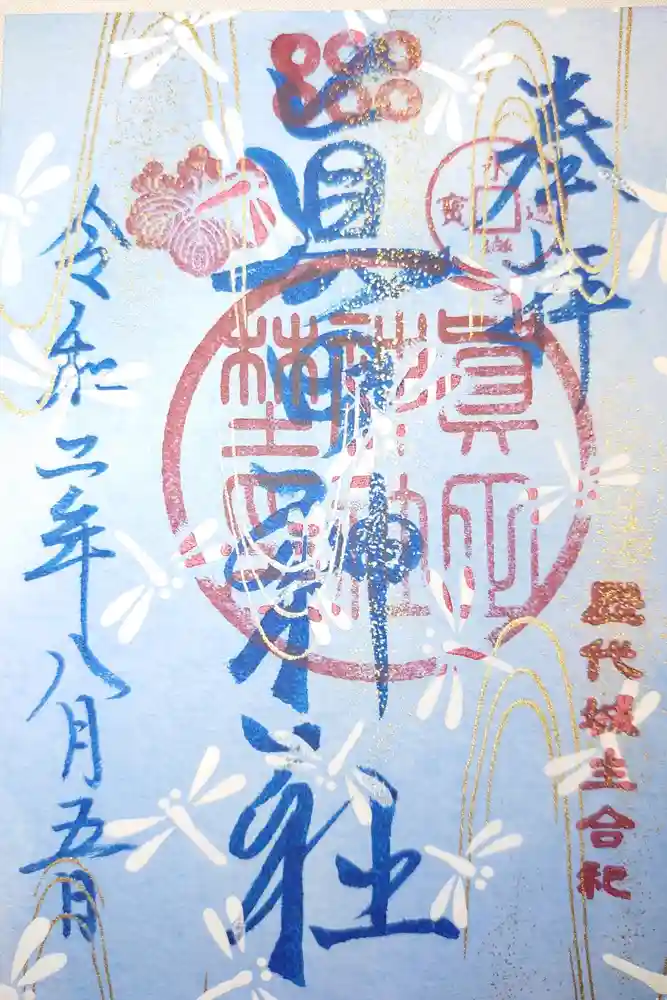 登拝
歴代城主合祀
眞田神社
令和二年八月五日
永樂通寶
眞田
神社